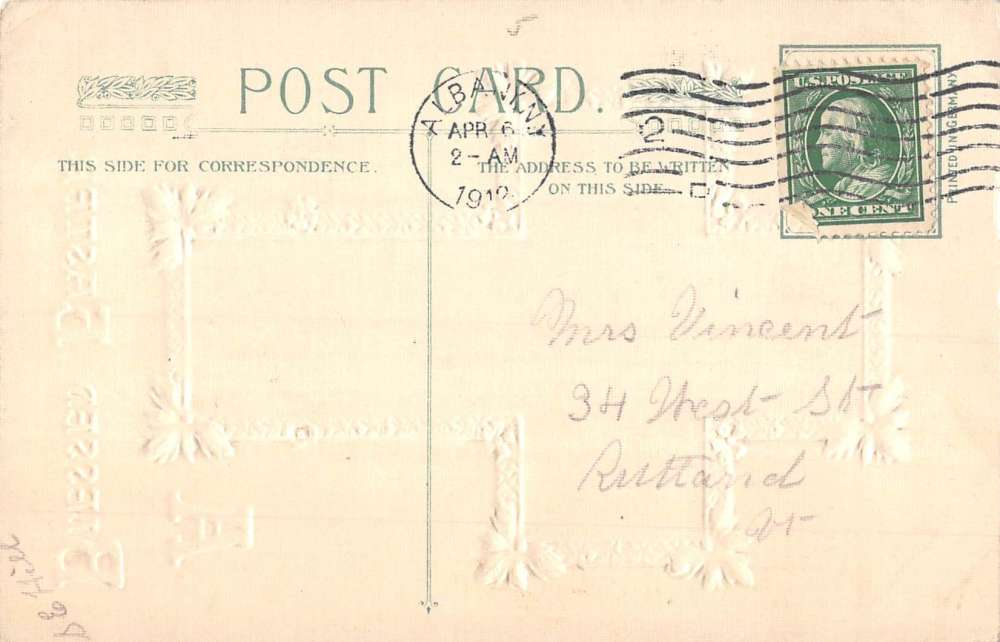 5
POST CARD.
THIS SIDE FOR CORRESPONDENCE.
THE ADDRESS TO BE WRITTEN
ON THIS SIDE.
ALBANY, N.Y.
APR 6
2-AM
1912
2
D
U.S. POSTAGE
ONE CENT
PRINTED IN GERMANY
Mrs Vincent
34 West St
Rutland
Vt
Hill